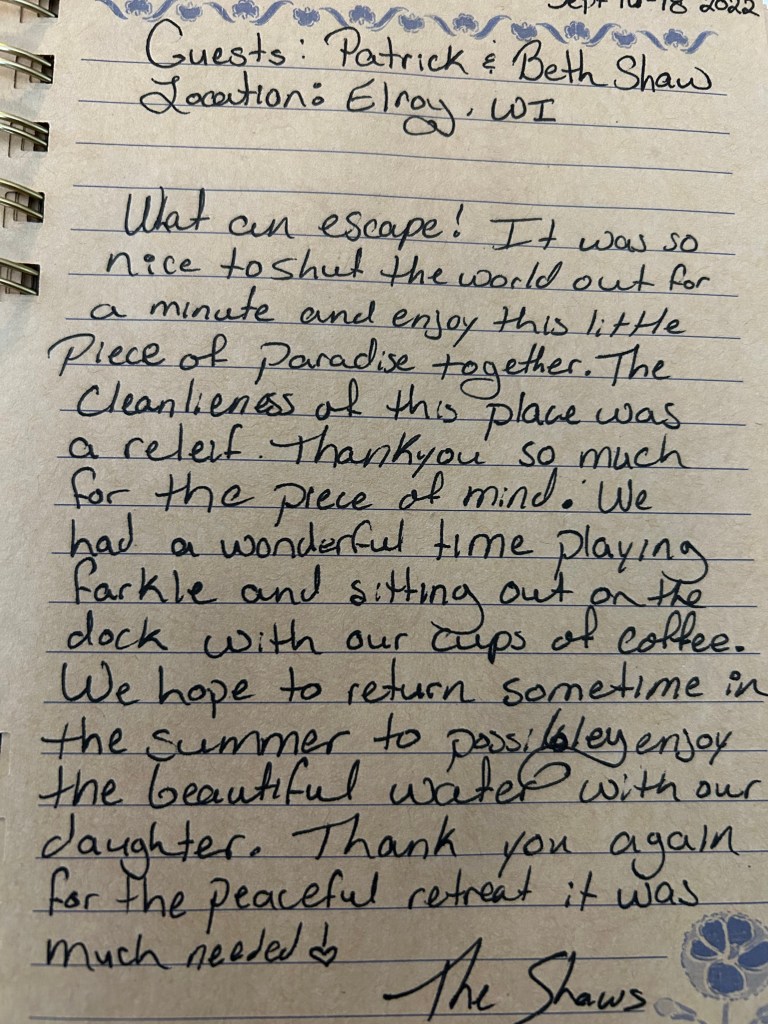 Sept 16-18 2022
Guests: Patrick & Beth Shaw
Location: Elroy, WI
What an escape! It was so
nice to shut the world out for
a minute and enjoy this little
Piece of paradise together. The
Cleanlieness of this place was
a releif. Thankyou so much
for the piece of mind. We
had a wonderful time playing
farkle and sitting out on the
dock with our cups of coffee.
We hope to return sometime in
the summer to possibley enjoy
the beautiful water with our
daughter. Thank you again
for the peaceful retreat it was
much needed
The Shaws